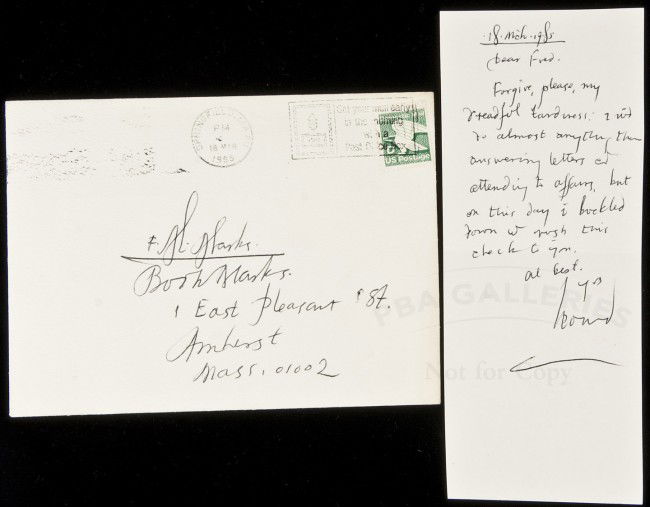 PM
18 MAR
1985
Set your mail early
in the morning
with a
Post Office Box
US Postage
F. H. Marks.
Book Marks.
1 East Pleasant St.
Amherst
Mass. 01002
18. Mch. 1985
Dear Fred.
Forgive, please, my
dreadful tardness. I wd
do almost anything than
answering letters or
attending to affairs, but
on this day I buckled
down & rush this
check to yu.
al best.
PBA GALLERIES
Not for Copy